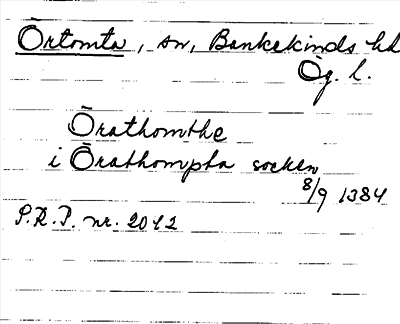 Örtomta, sn, Bankekinds hd
Ög. l.
Örathomthe
i Örathompta socken
8/9 1384
P.R.P. nr. 2042